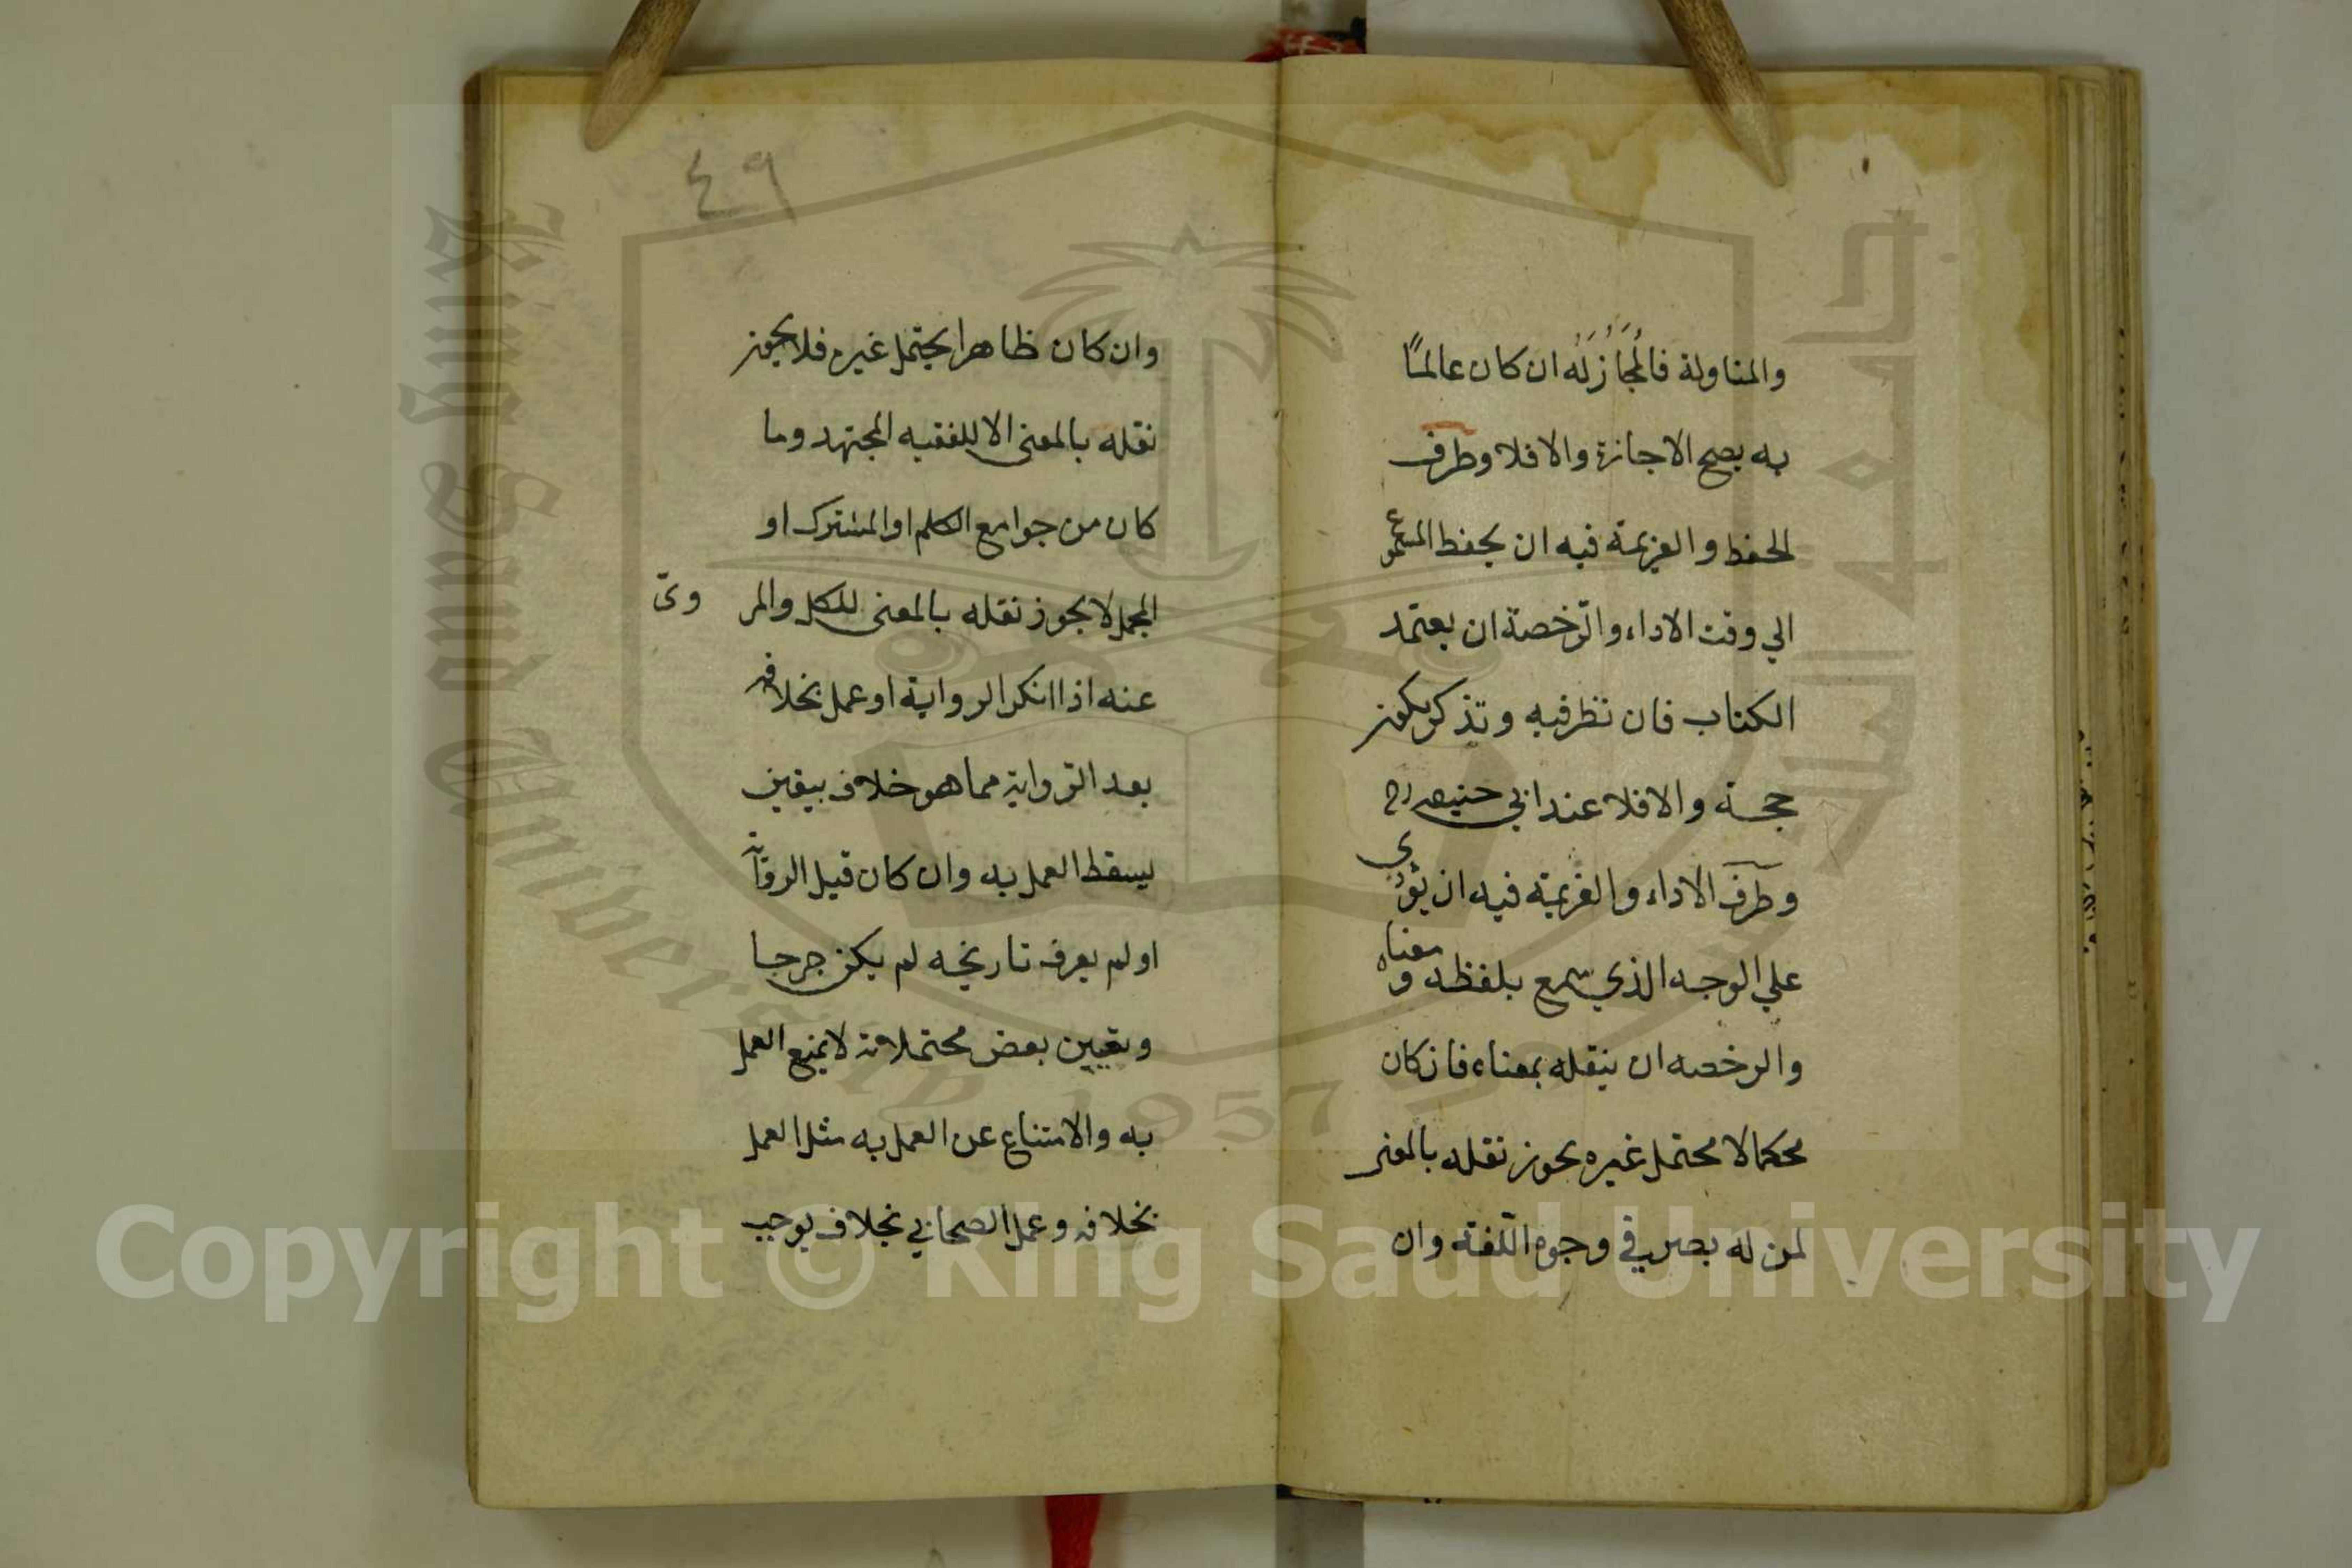 والمناولة فالمُجَازُ لَه ان كان عالمًا
به يصح الاجازة والا فلا وطرف
الحفظ والعزيمة فيه ان يحفظ المسموع
الي وقت الاداء والرّخصة ان يعتمد
الكتاب فان نظر فيه وتذكر يكون
حجة والا فلا عند ابي حنيفه رح
وطرف الاداء والعزيمة فيه ان يؤدي
علي الوجه الذي سمع بلفظه ومعناه
والرخصه ان ينقله بمعناه فان كان
محكما لا محتمل غيره يجوز نقله بالمعنى
لمن له بصر في وجوه اللّغة وان
٤٩
وان كان ظاهرا يحتمل غيره فلا يجوز
نقله بالمعنى الا للفقيه المجتهد وما
كان من جوامع الكلم او المشترك او
المجمل لا يجوز نقله بالمعنى للكل والمر
وىّ
عنه اذا انكر الرواية او عمل بخلافه
بعد الرّواية مما هو خلاف بيقين
يسقط العمل به وان كان قبل الرواية
او لم يعرف تاريخه لم يكن جرحا
وتعيين بعض محتملاته لا يمنع العمل
به والامتناع عن العمل به مثل العمل
بخلافه وعمل الصحابي بخلاف يوجب
King Saud University
1957
Copyright © King Saud University